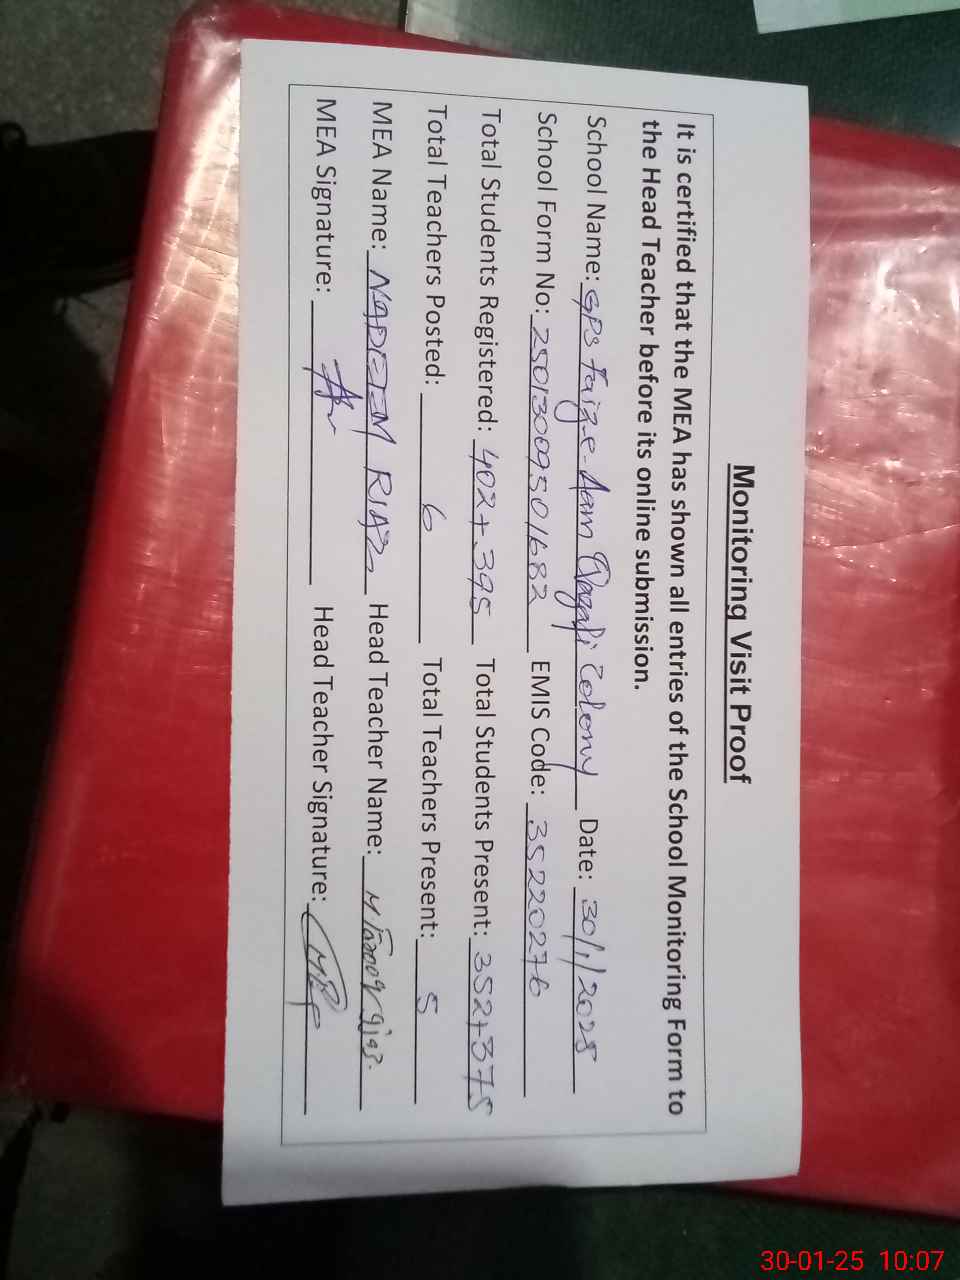 Monitoring Visit Proof
It is certified that the MEA has shown all entries of the School Monitoring Form to
the Head Teacher before its online submission.
School Name: GPS Faiz-e-Aam Qazafi Colony Date: 30/1/2025
School Form No: 25013009501682 EMIS Code: 35220276
Total Students Registered: 402+395 Total Students Present: 352+375
Total Teachers Posted: 6 Total Teachers Present: 5
MEA Name: NADEEM RIAZ Head Teacher Name: M
MEA Signature: Head Teacher Signature:
30-01-25 10:07